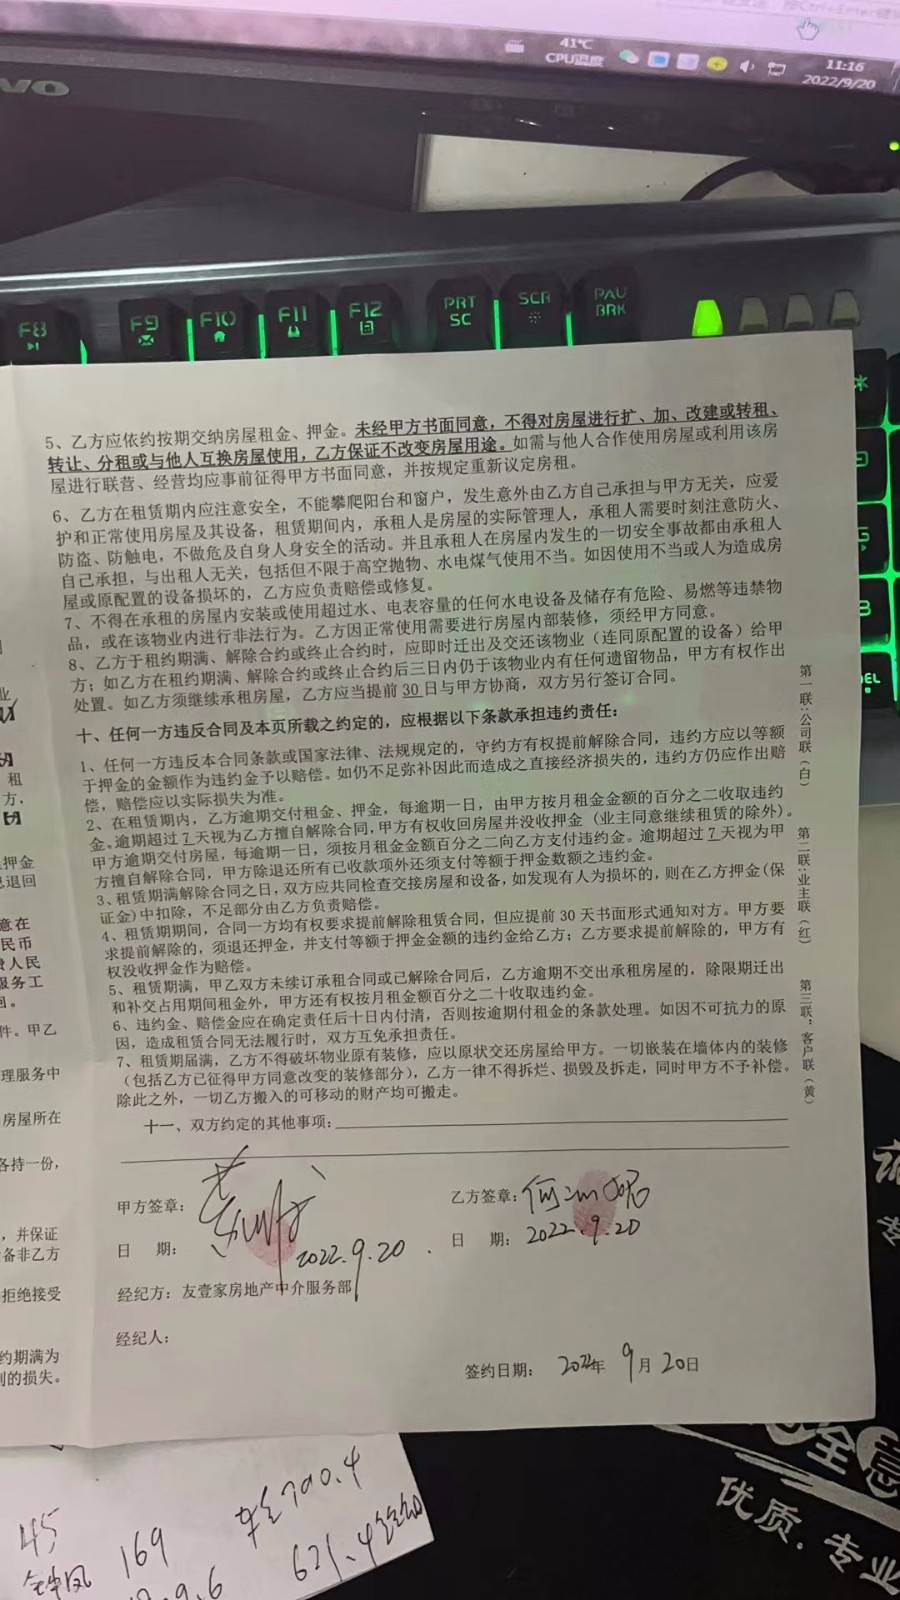 41℃
CPU温度
11:16
2022/9/20
VO
F8
F9
F10
F11
F12
PRT
SC
SCR
PAU
BRK
5、乙方应依约按期交纳房屋租金、押金。未经甲方书面同意，不得对房屋进行扩、加、改建或转租、
转让、分租或与他人互换房屋使用，乙方保证不改变房屋用途。如需与他人合作使用房屋或利用该房
屋进行联营、经营均应事前征得甲方书面同意，并按规定重新议定房租。
6、乙方在租赁期内应注意安全，不能攀爬阳台和窗户，发生意外由乙方自己承担与甲方无关，应爱
护和正常使用房屋及其设备，租赁期间内，承租人是房屋的实际管理人，承租人需要时刻注意防火、
防盗、防触电，不做危及自身人身安全的活动。并且承租人在房屋内发生的一切安全事故都由承租人
自己承担，与出租人无关，包括但不限于高空抛物、水电煤气使用不当。如因使用不当或人为造成房
屋或原配置的设备损坏的，乙方应负责赔偿或修复。
7、不得在承租的房屋内安装或使用超过水、电表容量的任何水电设备及储存有危险、易燃等违禁物
品，或在该物业内进行非法行为。乙方因正常使用需要进行房屋内部装修，须经甲方同意。
8、乙方于租约期满、解除合约或终止合约时，应即时迁出及交还该物业（连同原配置的设备）给甲
方；如乙方在租约期满、解除合约或终止合约后三日内仍于该物业内有任何遗留物品，甲方有权作出
处置。如乙方须继续承租房屋，乙方应当提前30日与甲方协商，双方另行签订合同。
十、任何一方违反合同及本页所载之约定的，应根据以下条款承担违约责任：
1、任何一方违反本合同条款或国家法律、法规规定的，守约方有权提前解除合同，违约方应以等额
于押金的金额作为违约金予以赔偿。如仍不足弥补因此而造成之直接经济损失的，违约方仍应作出赔
偿，赔偿应以实际损失为准。
2、在租赁期内，乙方逾期交付租金、押金，每逾期一日，由甲方按月租金金额的百分之二收取违约
金。逾期超过7天视为乙方擅自解除合同，甲方有权收回房屋并没收押金（业主同意继续租赁的除外）。
甲方逾期交付房屋，每逾期一日，须按月租金金额百分之二向乙方支付违约金。逾期超过7天视为甲
方擅自解除合同，甲方除退还所有已收款项外还须支付等额于押金数额之违约金。
3、租赁期满解除合同之日，双方应共同检查交接房屋和设备，如发现有人为损坏的，则在乙方押金(保
证金)中扣除，不足部分由乙方负责赔偿。
4、租赁期期间，合同一方均有权要求提前解除租赁合同，但应提前30天书面形式通知对方。甲方要
求提前解除的，须退还押金，并支付等额于押金金额的违约金给乙方；乙方要求提前解除的，甲方有
权没收押金作为赔偿。
5、租赁期满，甲乙双方未续订承租合同或已解除合同后，乙方逾期不交出承租房屋的，除限期迁出
和补交占用期间租金外，甲方还有权按月租金额百分之二十收取违约金。
6、违约金、赔偿金应在确定责任后十日内付清，否则按逾期付租金的条款处理。如因不可抗力的原
因，造成租赁合同无法履行时，双方互免承担责任。
7、租赁期届满，乙方不得破坏物业原有装修，应以原状交还房屋给甲方。一切嵌装在墙体内的装修
（包括乙方已征得甲方同意改变的装修部分），乙方一律不得拆烂、损毁及拆走，同时甲方不予补偿。
除此之外，一切乙方搬入的可移动的财产均可搬走。
十一、双方约定的其他事项：
甲方签章：
乙方签章：
日 期：2022.9.20
日 期：2022.9.20
经纪方：友壹家房地产中介服务部
经纪人：
签约日期：2022年9月20日
第一联：公司联（白）
第二联：业主联（红）
第三联：客户联（黄）
租
方，
押金
退回
意在
民币
人民
服务工
件。甲乙
理服务中
房屋所在
各持一份，
，并保证
备非乙方
拒绝接受
约期满为
的损失。
45
169
790.4
621.4
9.6
全意
优质.专业